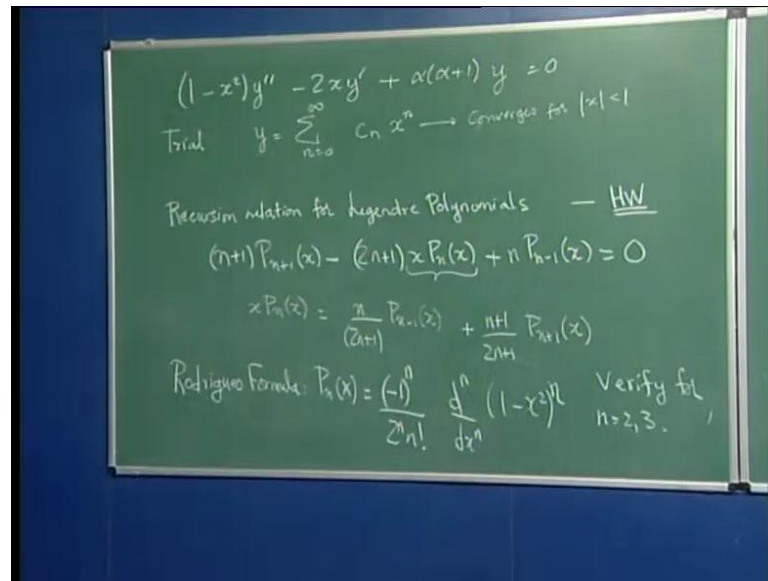 (1-x²)y'' - 2xy' + α(α+1) y = 0
Trial y = ∑_{n=0}^{∞} Cₙ xⁿ ⟶ Converges for |x|<1
Recursion relation for Legendre Polynomials — HW
(n+1)Pₙ₊₁(x) - (2n+1) x Pₙ(x) + n Pₙ₋₁(x) = 0
xPₙ(x) = n/(2n+1) Pₙ₋₁(x) + n+1/2n+1 Pₙ₊₁(x)
Rodrigues Formula: Pₙ(x) = (-1)ⁿ/2ⁿn! dⁿ/dxⁿ (1-x²)ⁿ Verify for
n=2,3.